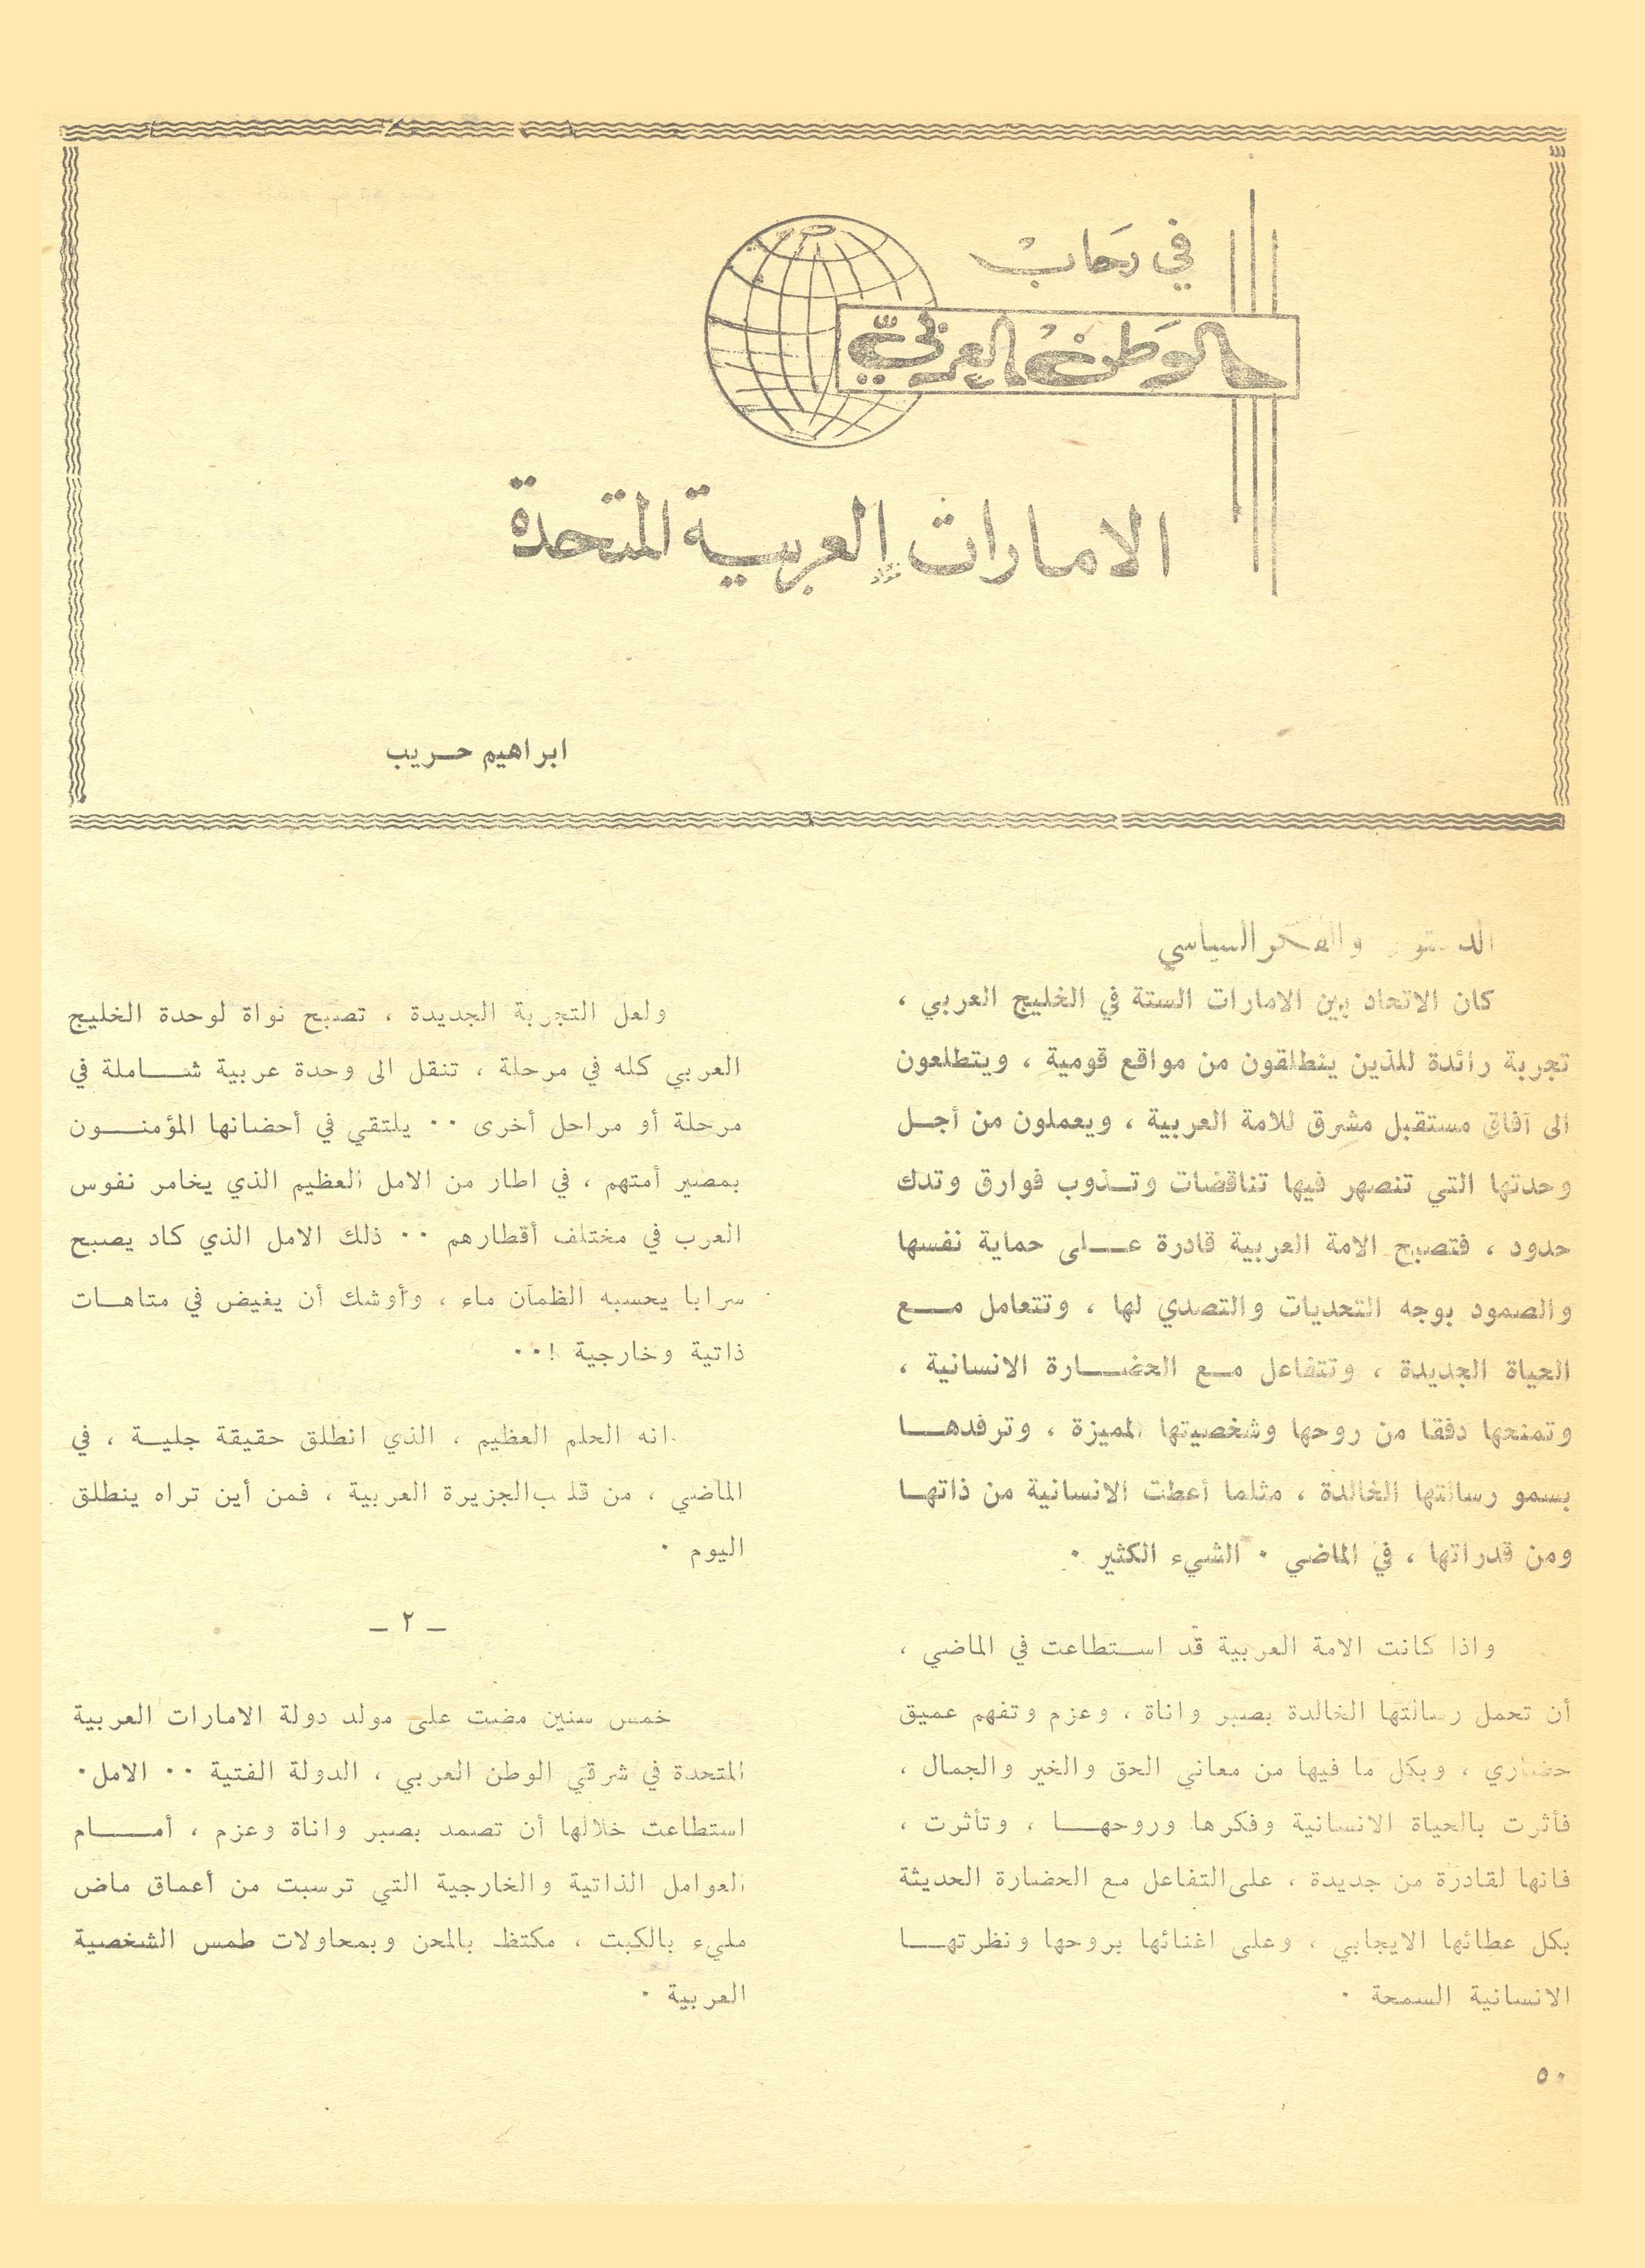 في رحاب
الوطن العربي
الامارات العربية المتحدة
فؤاد
ابراهيم حريب
الدستور والفكر السياسي
كان الاتحاد بين الامارات الستة في الخليج العربي ،
تجربة رائدة للذين ينطلقون من مواقع قومية ، ويتطلعون
الى آفاق مستقبل مشرق للامة العربية ، ويعملون من أجل
وحدتها التي تنصهر فيها تناقضات وتذوب فوارق وتدك
حدود ، فتصبح الامة العربية قادرة على حماية نفسها
والصمود بوجه التحديات والتصدي لها ، وتتعامل مع
الحياة الجديدة ، وتتفاعل مع الحضارة الانسانية ،
وتمنحها دفقا من روحها وشخصيتها المميزة ، وترفدها
بسمو رسالتها الخالدة ، مثلما أعطت الانسانية من ذاتها
ومن قدراتها ، في الماضي ٠ الشيء الكثير ٠
واذا كانت الامة العربية قد استطاعت في الماضي ،
أن تحمل رسالتها الخالدة بصبر واناة ، وعزم وتفهم عميق
حضاري ، وبكل ما فيها من معاني الحق والخير والجمال ،
فأثرت بالحياة الانسانية وفكرها وروحها ، وتأثرت ،
فانها لقادرة من جديدة ، على التفاعل مع الحضارة الحديثة
بكل عطائها الايجابي ، وعلى اغنائها بروحها ونظرتها
الانسانية السمحة ٠
ولعل التجربة الجديدة ، تصبح نواة لوحدة الخليج
العربي كله في مرحلة ، تنقل الى وحدة عربية شاملة في
مرحلة أو مراحل أخرى ٠٠ يلتقي في أحضانها المؤمنون
بمصير أمتهم ، في اطار من الامل العظيم الذي يخامر نفوس
العرب في مختلف أقطارهم ٠٠ ذلك الامل الذي كاد يصبح
سرابا يحسبه الظمآن ماء ، وأوشك أن يغيض في متاهات
ذاتية وخارجية !٠٠
انه الحلم العظيم ، الذي انطلق حقيقة جلية ، في
الماضي ، من قلب الجزيرة العربية ، فمن أين تراه ينطلق
اليوم ٠
– ٢ –
خمس سنين مضت على مولد دولة الامارات العربية
المتحدة في شرقي الوطن العربي ، الدولة الفتية ٠٠ الامل٠
استطاعت خلالها أن تصمد بصبر واناة وعزم ، أمام
العوامل الذاتية والخارجية التي ترسبت من أعماق ماض
مليء بالكبت ، مكتظ بالمحن وبمحاولات طمس الشخصية
العربية ٠
٥٠